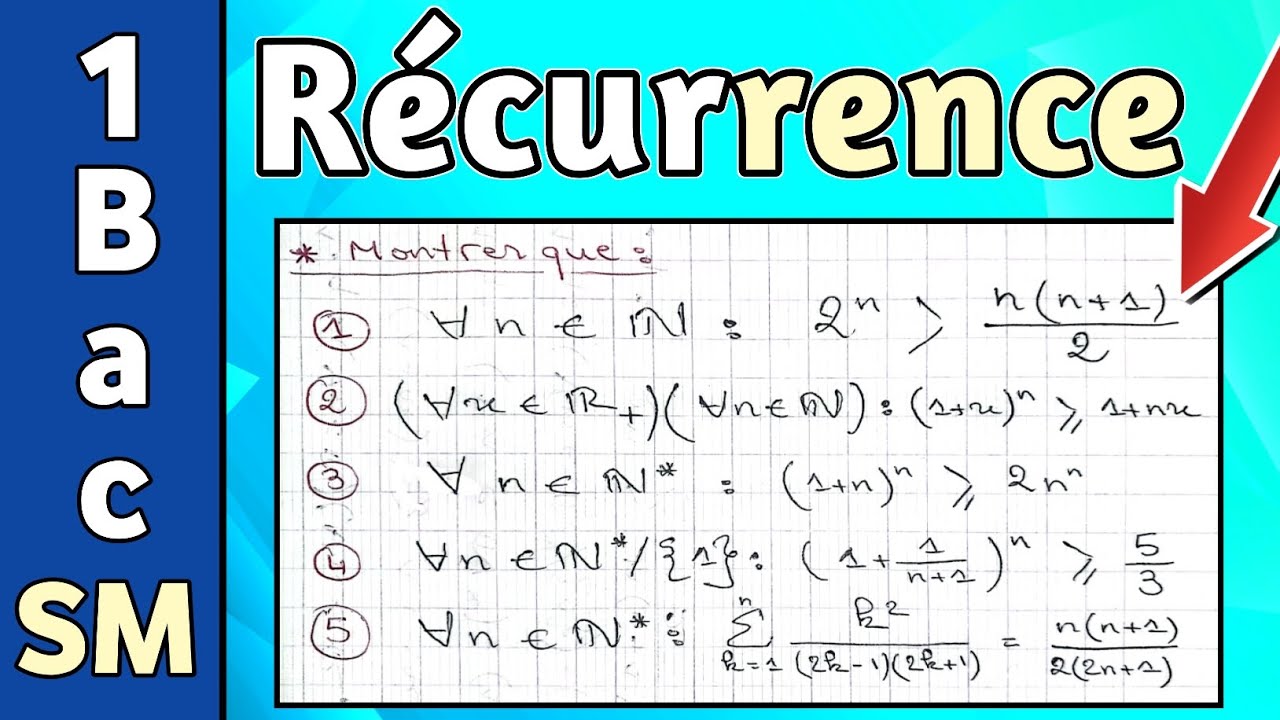 1
B
a
c
SM
Récurrence
* Montrer que :
① ∀n ∈ ℕ : 2ⁿ > n(n+1)/2
② (∀x ∈ ℝ₊)(∀n ∈ ℕ) : (1+x)ⁿ ⩾ 1+nx
③ ∀n ∈ ℕ* : (1+n)ⁿ ⩾ 2nⁿ
④ ∀n ∈ ℕ*/{1} : (1 + 1/(n+1))ⁿ ⩾ 5/3
⑤ ∀n ∈ ℕ* : ∑_{k=1}^{n} k²/((2k-1)(2k+1)) = n(n+1)/(2(2n+1))